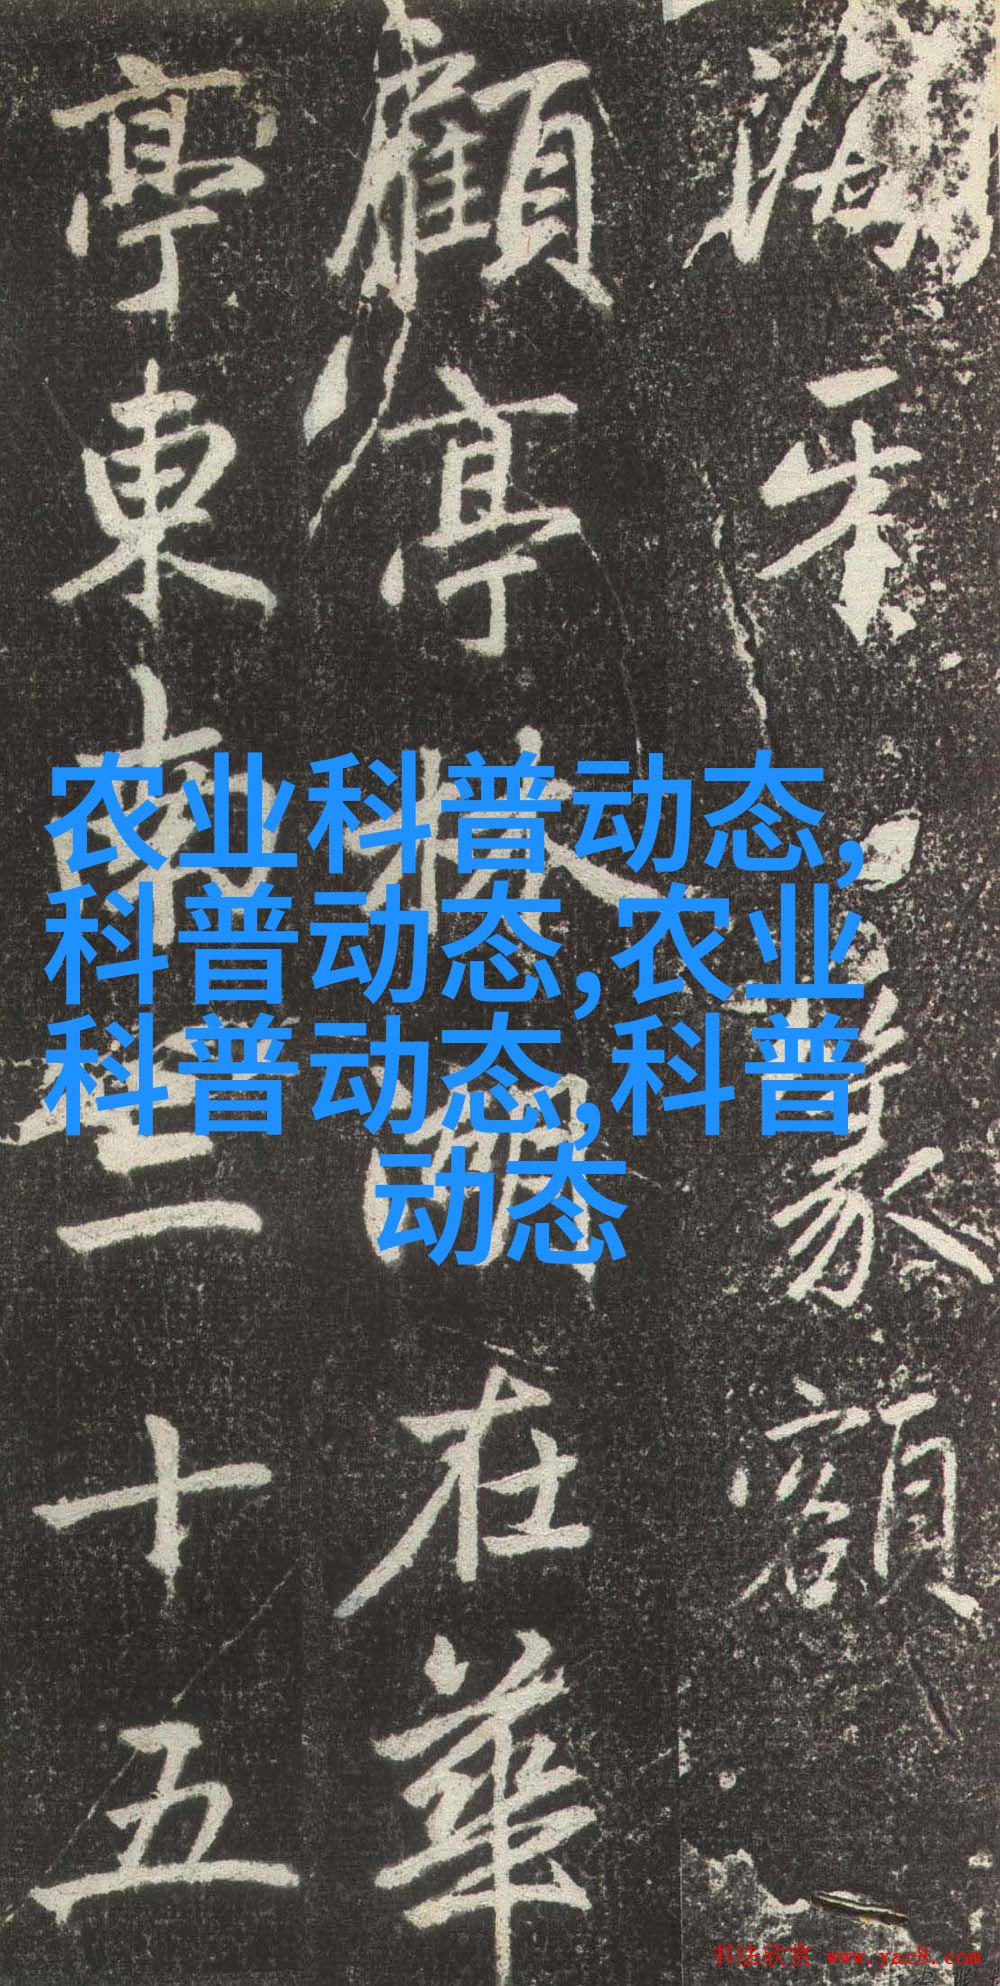 篆額
顧亭林湖在華
亭東南三十五
农业科普动态,
科普动态,农业
科普动态,科普
动态
书法欣赏 www.yac8.com